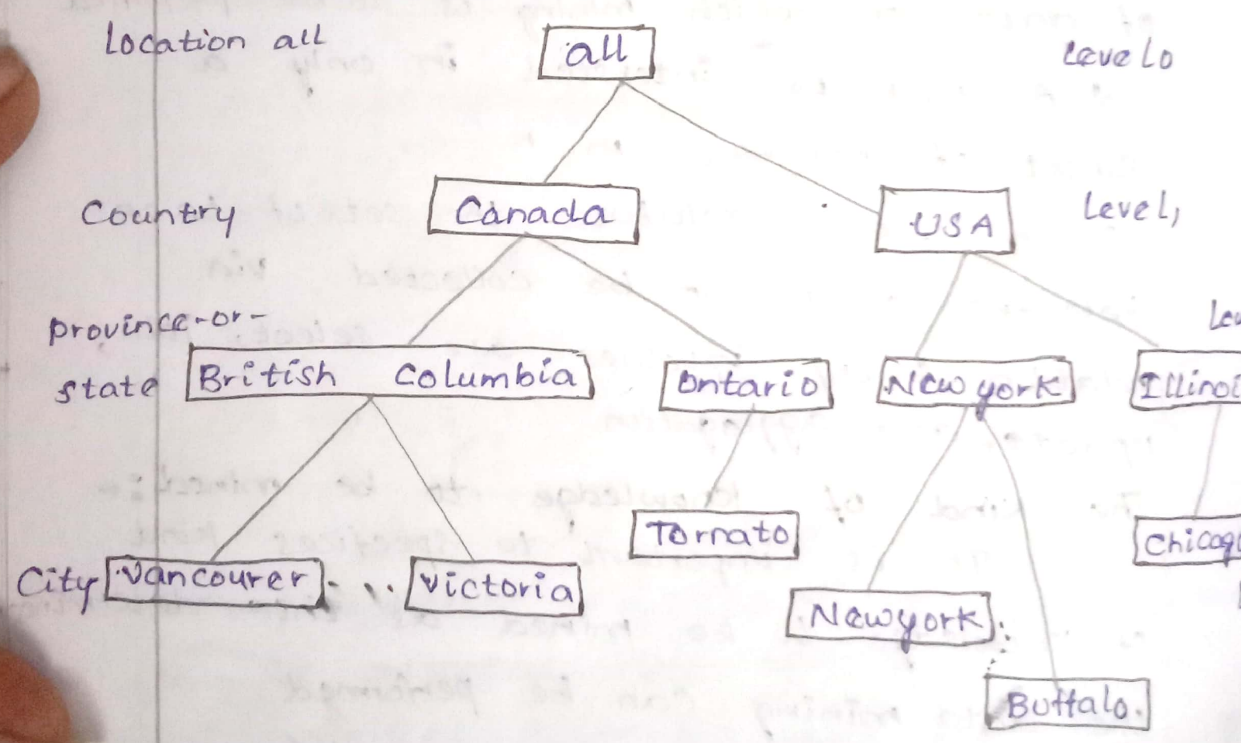 Location all all Level 0
Country Canada USA Level 1
province-or-
state British Columbia Ontario New york
Tornato
City Vancourer ... Victoria
Newyork
Buttalo.